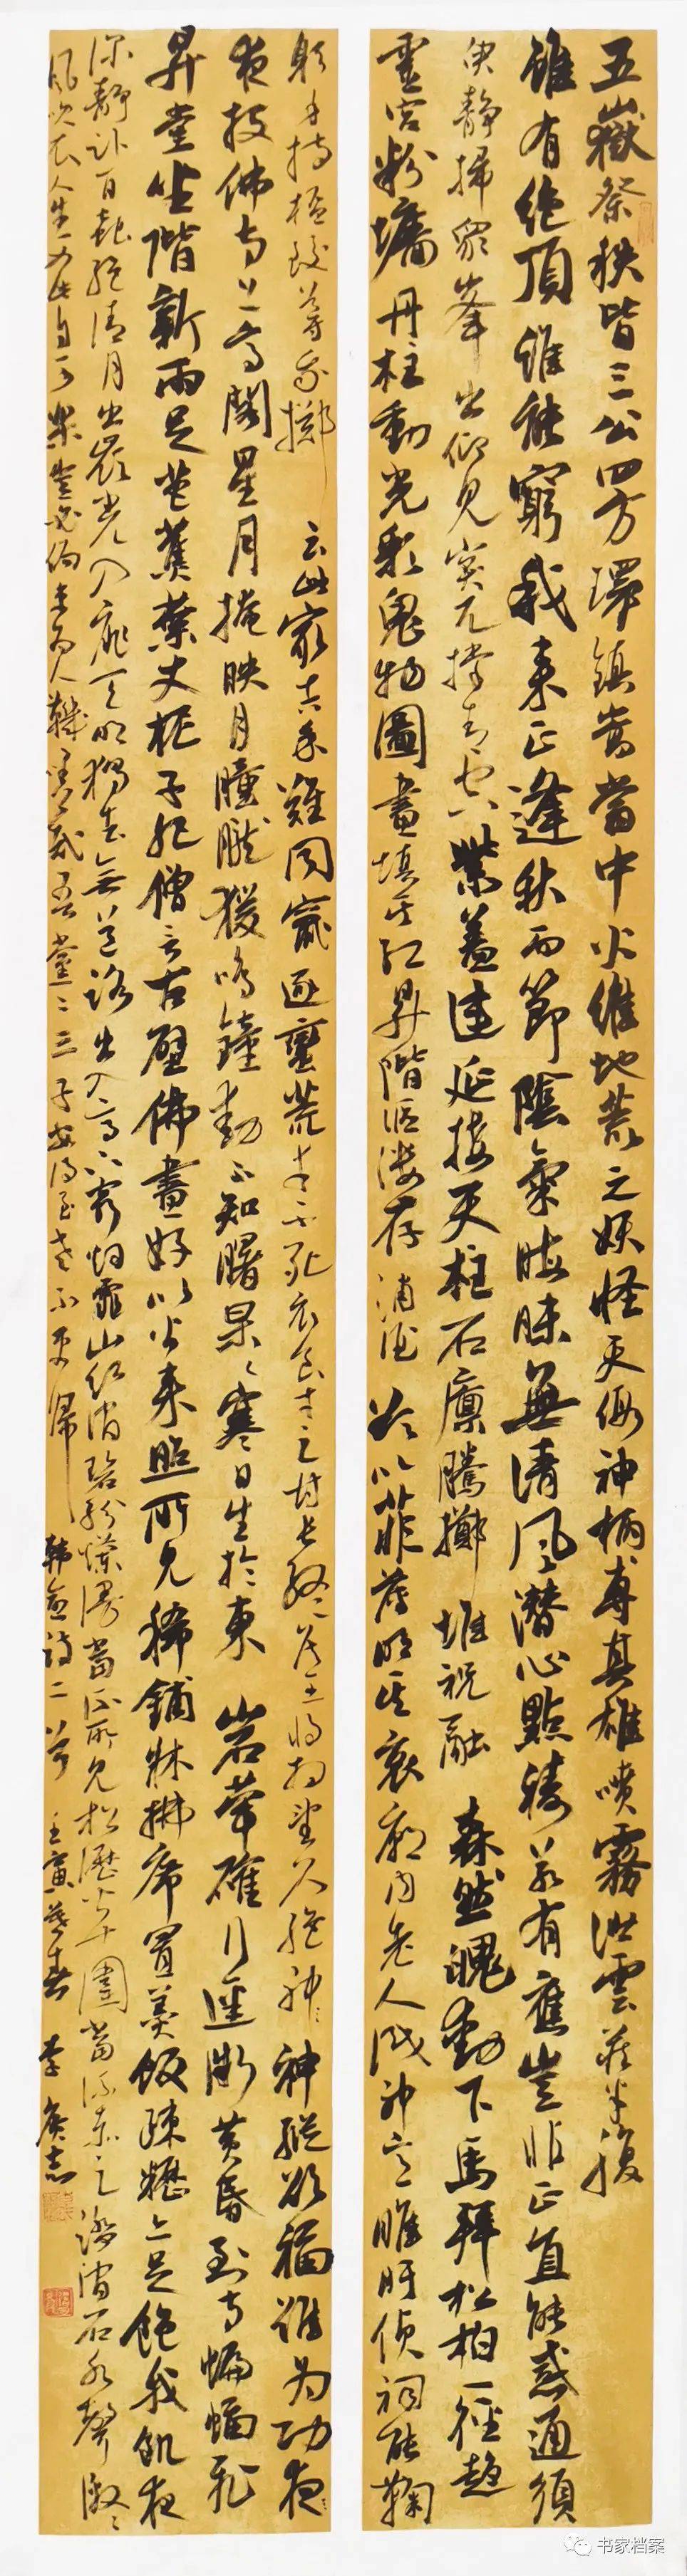 五嶽祭秩皆三公四方環鎮嵩當中火維地荒足妖怪天假神柄專其雄噴霧泄雲藏半腹
雖有絕頂誰能窮我來正逢秋雨節陰氣晦昧無清風潛心默禱若有應豈非正直能感通須
臾靜掃眾峯出仰見突兀撐青空紫蓋連延接天柱石廩騰擲堆祝融森然魄動下馬拜松柏一徑趨
靈宮粉墻丹柱動光彩鬼物圖畫填青紅昇階傴僂存脯酒欲以菲薄明其衷廟內老人識神意睢盱偵伺能鞠
躬手持杯珓導我擲云此最吉餘難同竄逐蠻荒幸不死衣食才足甘長終侯王將相望久絕神縱欲福難為功夜
夜投佛寺上高閣星月掩映月朣朧猨鳴鐘動不知曙杲杲寒日生於東山石犖確行徑微黃昏到寺蝙蝠飛
昇堂坐階新雨足芭蕉葉大梔子肥僧言古壁佛畫好以火來照所見稀鋪牀拂席置羹飯疎糲亦足飽我飢夜
深靜臥百蟲絕清月出嶺光入扉天明獨去無道路出入高下窮煙霏山紅澗碧紛爛漫見松櫪皆十圍當流赤足踏澗石水聲激激
風吹衣人生如此自可樂豈必局束為人鞿嗟哉吾黨二三子安得至老不更歸 韓愈詩二首 壬寅暮春 李廣志
书家档案